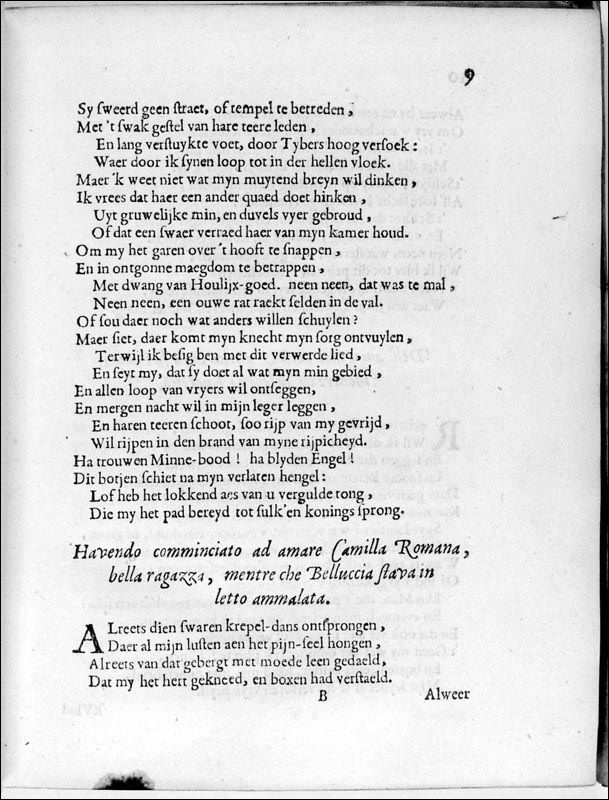 9
Sy ſweerd geen ſtraet, of tempel te betreden,
Met 't ſwak geſtel van hare teere leden,
En lang verſtuykte voet, door Tybers hoog verſoek:
Waer door ik ſynen loop tot in der hellen vloek.
Maer 'k weet niet wat myn muytend breyn wil dinken,
Ik vrees dat haer een ander quaed doet hinken,
Uyt gruwelijke min, en duvels vyer gebroud,
Of dat een ſwaer verraed haer van myn kamer houd.
Om my het garen over 't hooft te ſnappen,
En in ontgonne maegdom te betrappen,
Met dwang van Houlijx-goed. neen neen, dat was te mal,
Neen neen, een ouwe rat raekt ſelden in de val.
Of ſou daer noch wat anders willen ſchuylen?
Maer ſiet, daer komt myn knecht myn ſorg ontvuylen,
Terwijl ik beſig ben met dit verwerde lied,
En ſeyt my, dat ſy doet al wat myn min gebied,
En allen loop van vryers wil ontſeggen,
En mergen nacht wil in mijn leger leggen,
En haren teeren ſchoot, ſoo rijp van my gevrijd,
Wil rijpen in den brand van myne rijpicheyd.
Ha trouwen Minne-bood! ha blyden Engel!
Dit borjen ſchiet na myn verlaten hengel:
Lof heb het lokkend aes van u vergulde tong,
Die my het pad bereyd tot ſulk'en konings ſprong.
Havendo comminciato ad amare Camilla Romana,
bella ragazza, mentre che Belluccia ſtava in
letto ammalata.
ALreets dien ſwaren krepel-dans ontſprongen,
Daer al mijn luſten aen het pijn-ſeel hongen,
Alreets van dat gebergt met moede leen gedaeld,
Dat my het hert gekneed, en boxen had verſtaeld.
B
Alweer